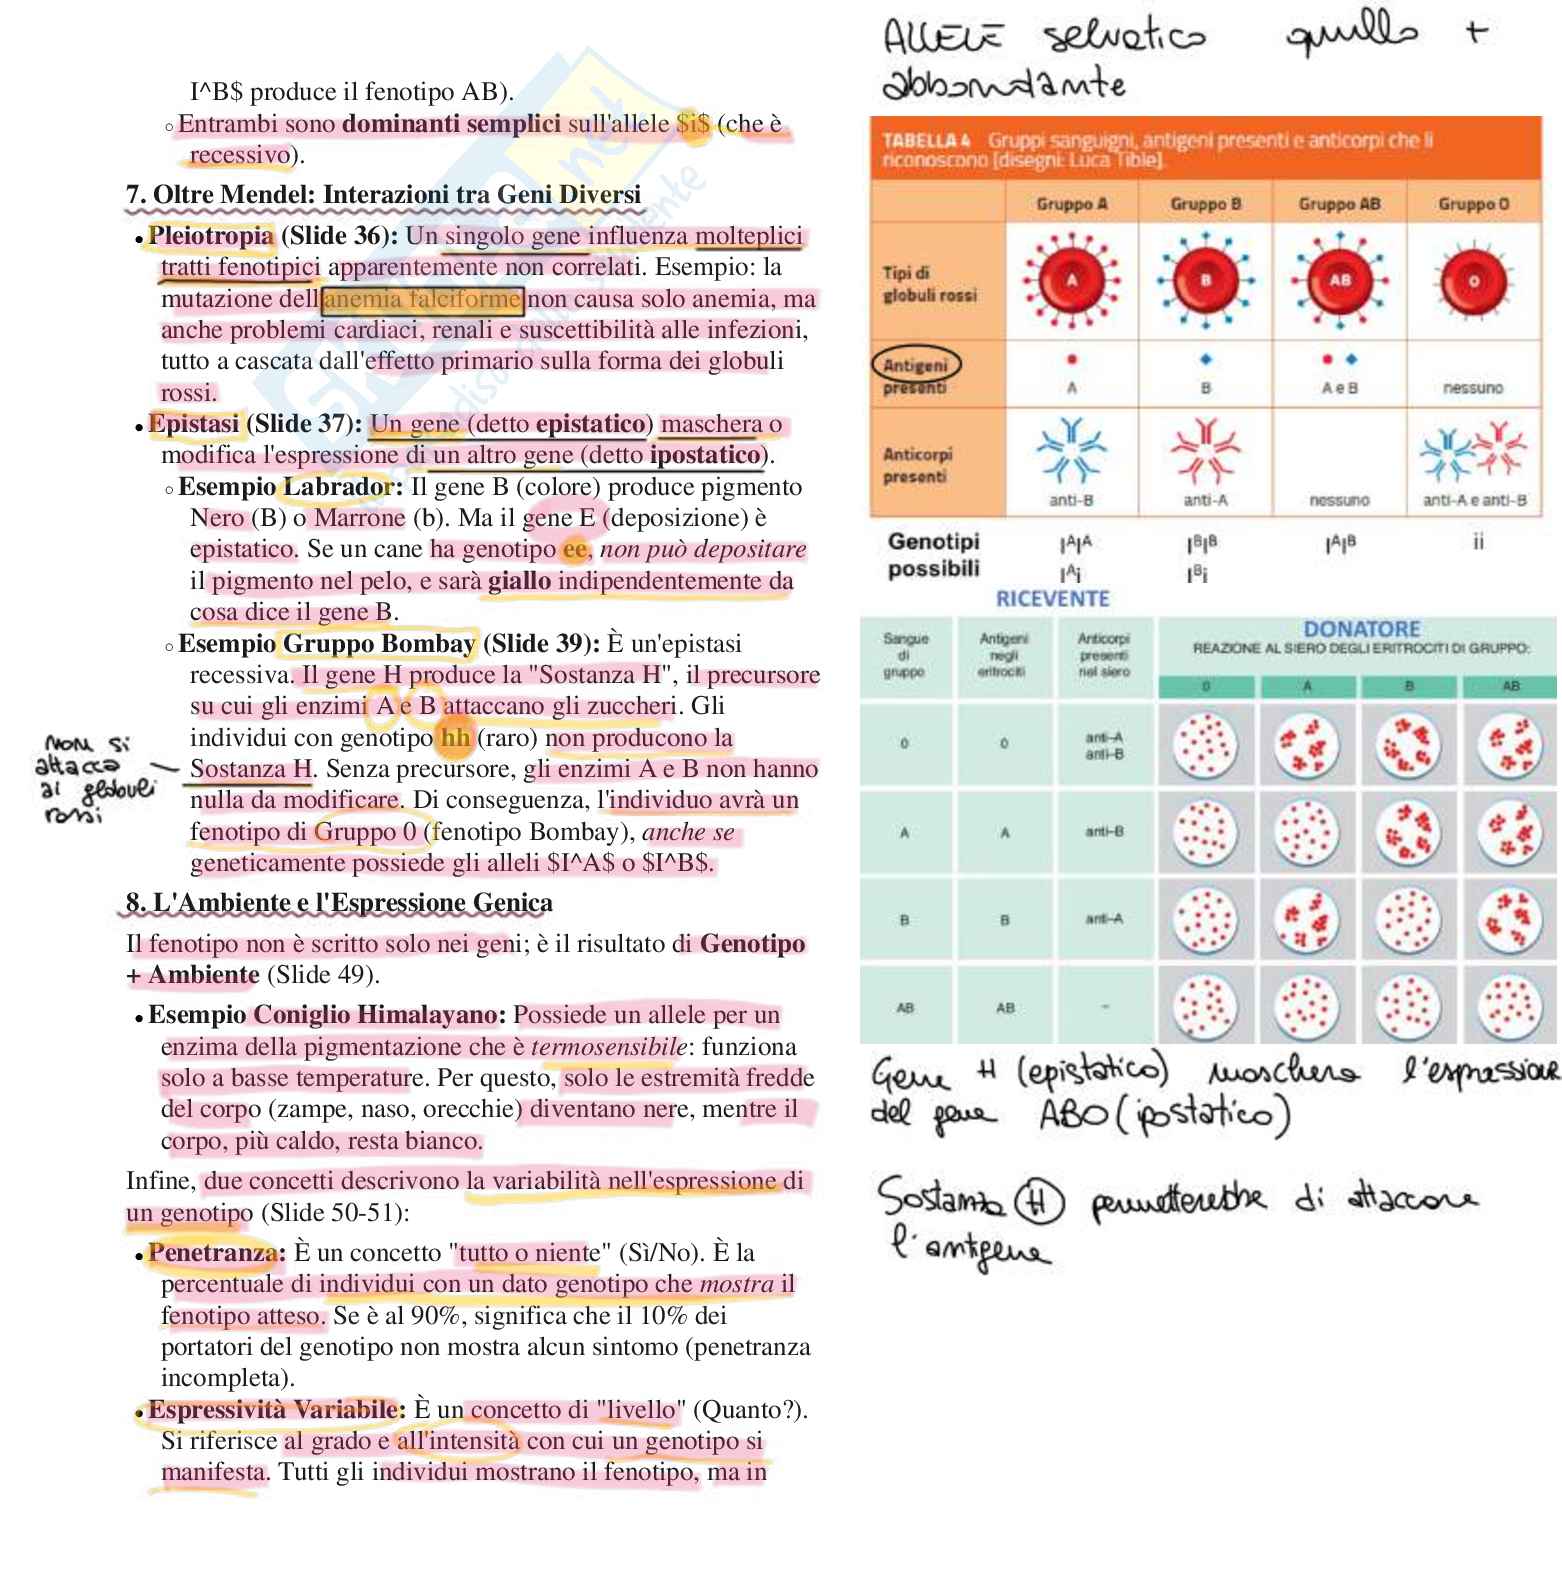 I^B$ produce il fenotipo AB).
○ Entrambi sono dominanti semplici sull'allele $i$ (che è
recessivo).
7. Oltre Mendel: Interazioni tra Geni Diversi
• Pleiotropia (Slide 36): Un singolo gene influenza molteplici
tratti fenotipici apparentemente non correlati. Esempio: la
mutazione dell'anemia falciforme non causa solo anemia, ma
anche problemi cardiaci, renali e suscettibilità alle infezioni,
tutto a cascata dall'effetto primario sulla forma dei globuli
rossi.
• Epistasi (Slide 37): Un gene (detto epistatico) maschera o
modifica l'espressione di un altro gene (detto ipostatico).
○ Esempio Labrador: Il gene B (colore) produce pigmento
Nero (B) o Marrone (b). Ma il gene E (deposizione) è
epistatico. Se un cane ha genotipo ee, non può depositare
il pigmento nel pelo, e sarà giallo indipendentemente da
cosa dice il gene B.
○ Esempio Gruppo Bombay (Slide 39): È un'epistasi
recessiva. Il gene H produce la "Sostanza H", il precursore
su cui gli enzimi A e B attaccano gli zuccheri. Gli
individui con genotipo hh (raro) non producono la
Sostanza H. Senza precursore, gli enzimi A e B non hanno
nulla da modificare. Di conseguenza, l'individuo avrà un
fenotipo di Gruppo 0 (fenotipo Bombay), anche se
geneticamente possiede gli alleli $I^A$ o $I^B$.
Non si
attacca
ai globuli
rossi
8. L'Ambiente e l'Espressione Genica
Il fenotipo non è scritto solo nei geni; è il risultato di Genotipo
+ Ambiente (Slide 49).
• Esempio Coniglio Himalayano: Possiede un allele per un
enzima della pigmentazione che è termosensibile: funziona
solo a basse temperature. Per questo, solo le estremità fredde
del corpo (zampe, naso, orecchie) diventano nere, mentre il
corpo, più caldo, resta bianco.
Infine, due concetti descrivono la variabilità nell'espressione di
un genotipo (Slide 50-51):
• Penetranza: È un concetto "tutto o niente" (Sì/No). È la
percentuale di individui con un dato genotipo che mostra il
fenotipo atteso. Se è al 90%, significa che il 10% dei
portatori del genotipo non mostra alcun sintomo (penetranza
incompleta).
• Espressività Variabile: È un concetto di "livello" (Quanto?).
Si riferisce al grado e all'intensità con cui un genotipo si
manifesta. Tutti gli individui mostrano il fenotipo, ma in
ALLELE selvatico quello +
abbondante
TABELLA 4 Gruppi sanguigni, antigeni presenti e anticorpi che li
riconoscono [disegni: Luca Tible].
Gruppo A Gruppo B Gruppo AB Gruppo 0
Tipi di
globuli rossi
A B AB 0
Antigeni
presenti
A B A e B nessuno
Anticorpi
presenti
anti-B anti-A nessuno anti-A e anti-B
Genotipi
possibili
IᴬIᴬ IᴮIᴮ IᴬIᴮ ii
Iᴬi Iᴮi
RICEVENTE
DONATORE
Sangue di gruppo
Antigeni negli eritrociti
Anticorpi presenti nel siero
REAZIONE AL SIERO DEGLI ERITROCITI DI GRUPPO:
0 A B AB
0 0 anti-A anti-B
A A anti-B
B B anti-A
AB AB -
Gene H (epistatico) maschera l'espressione
del gene ABO (ipostatico)
Sostanza H permetterebbe di attaccare
l'antigene